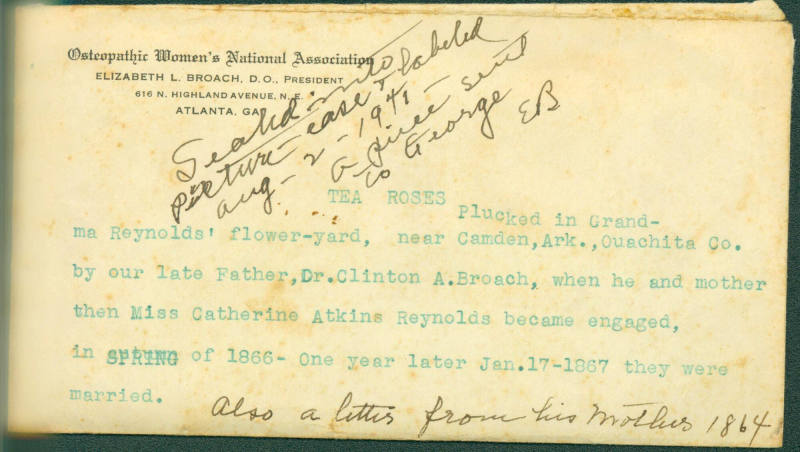 Osteopathic Women's National Association
ELIZABETH L. BROACH, D.O., PRESIDENT
616 N. HIGHLAND AVENUE, N. E.
ATLANTA, GA
Seald into
picture case & labeled
Aug - 2 - 1941
a piece sent
to George
EB
TEA ROSES
Plucked in Grand-
ma Reynolds' flower-yard, near Camden,Ark.,Ouachita Co.
by our late Father,Dr.Clinton A.Broach, when he and mother
then Miss Catherine Atkins Reynolds became engaged,
in SPRING of 1866- One year later Jan.17-1867 they were
married.
Also a letter from his Mother 1864